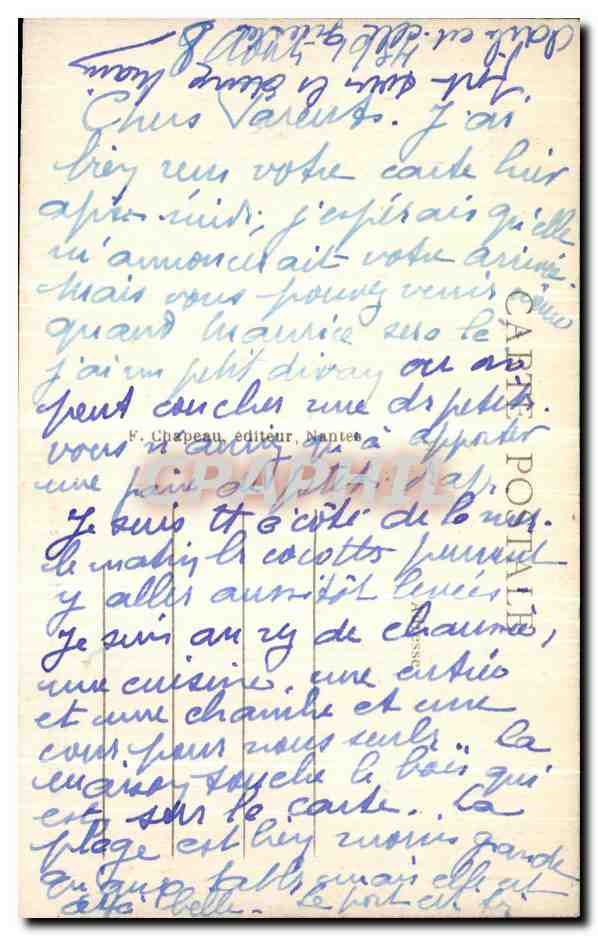 Chers Parents. J'ai
bien reçu votre carte hier
après-midi, j'espérais qu'elle
m'annoncerait votre arrivée.
Mais vous pouvez venir même
quand Maurice sera là
j'ai un petit divan ou on
peut coucher une des petites.
F. Chapeau, éditeur, Nantes
vous n'auriez qu'à apporter
une paire de petits draps
CPAPHIL
Je suis tt à côté de la mer.
le matin les cocottes peuvent
y aller aussitôt levées
Je suis au rez de chaussée,
une cuisine, une entrée
et une chambre et une
cour pour nous seuls. La
maison touche le bois qui
est sur la carte. La
plage est bien moins grande
qu'aux Sables mais elle est
belle. Le port est
CARTE POSTALE
Adresse